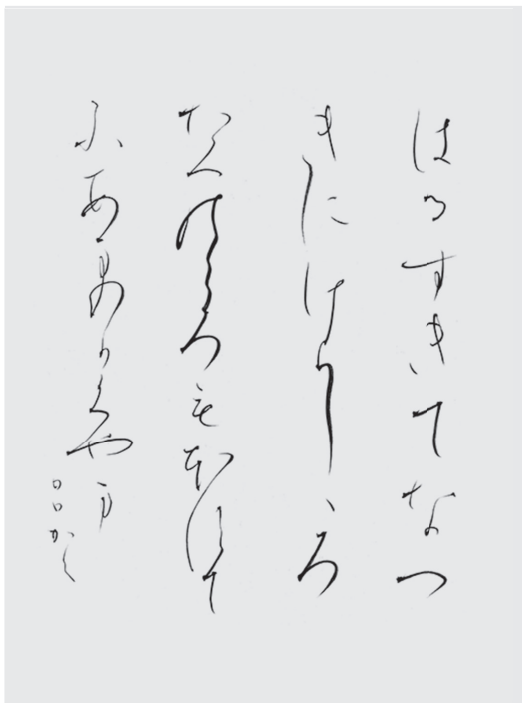 はるすきてなつ
きにけらしゝろ
たへのころもほすて
ふあまのかくやま
口口かく